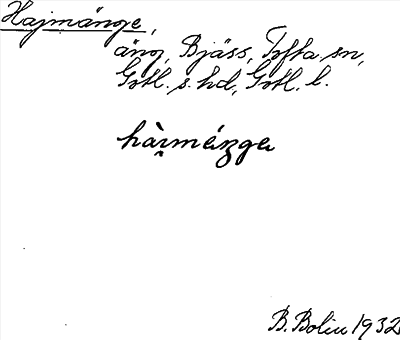 Hajmänge,
äng, Bjäss, Tofta sn,
Gotl. s. hd, Gotl. l.
B. Bolin 1932